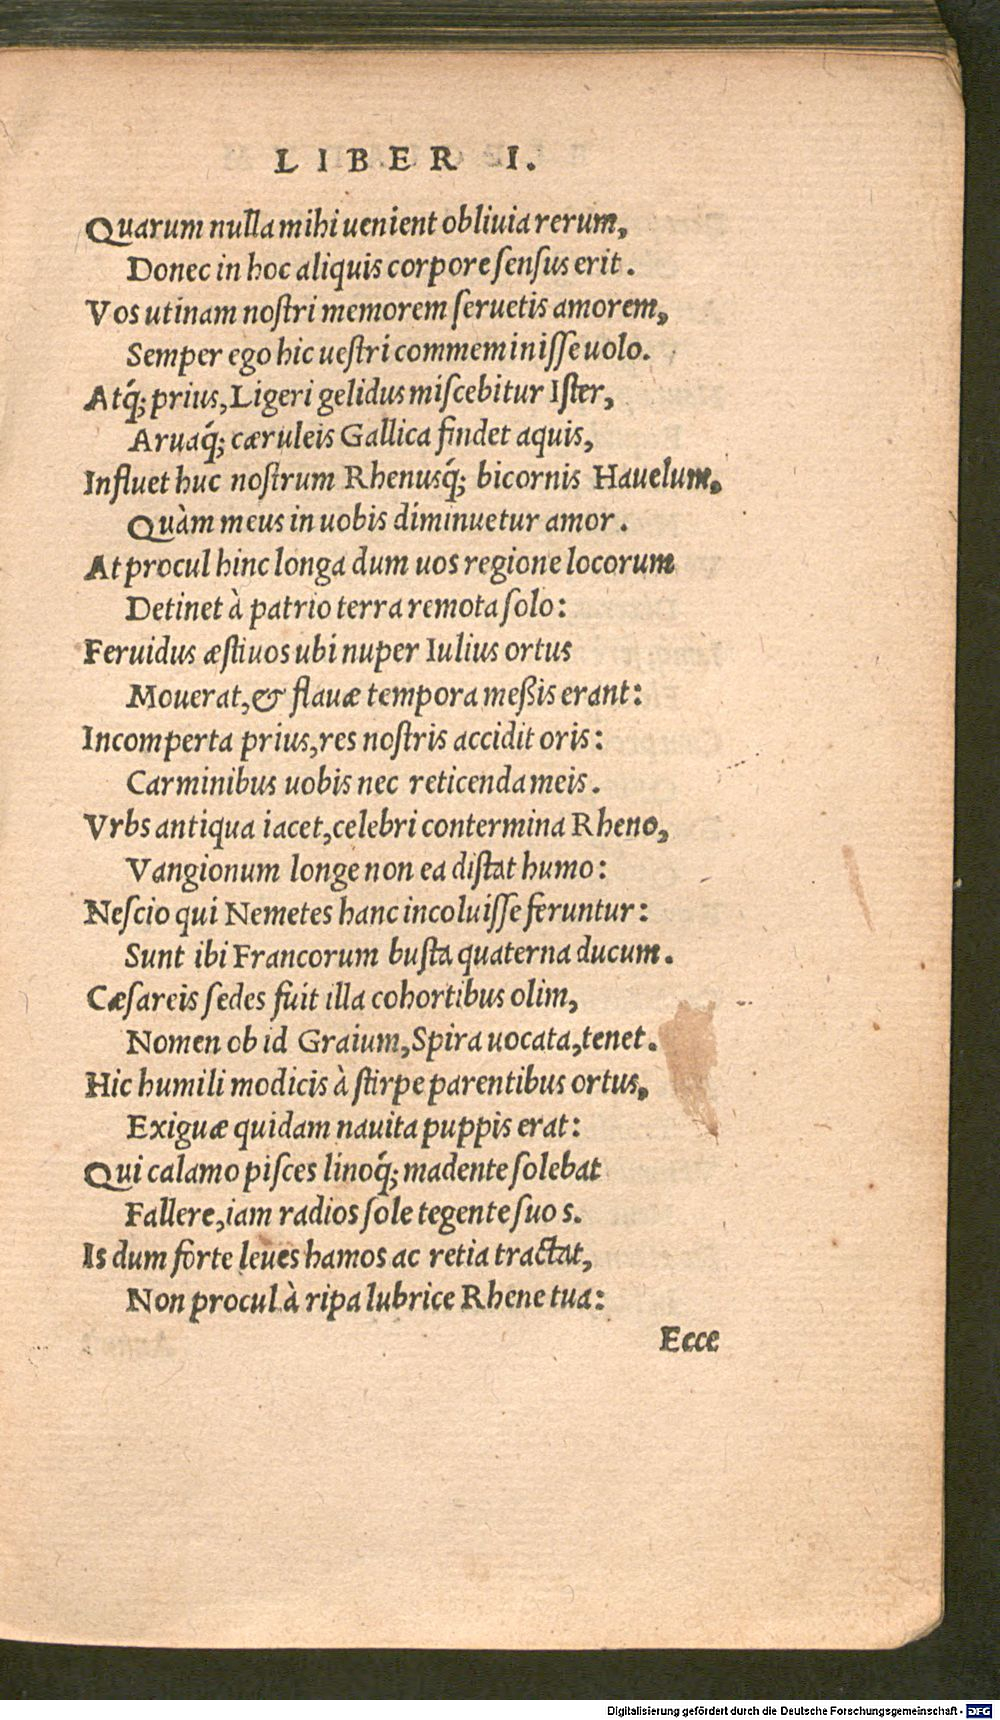 LIBER I.
Quarum nulla mihi uenient obliuia rerum,
Donec in hoc aliquis corpore ſenſus erit.
Vos utinam noſtri memorem ſeruetis amorem,
Semper ego hic ueſtri commeminiſſe uolo.
Atq́; prius, Ligeri gelidus miſcebitur Iſter,
Aruaq́; cæruleis Gallica findet aquis,
Influet huc noſtrum Rhenusq́; bicornis Hauelum.
Quàm meus in uobis diminuetur amor.
At procul hinc longa dum uos regione locorum
Detinet à patrio terra remota ſolo:
Feruidus æſtiuos ubi nuper Iulius ortus
Mouerat, & flauæ tempora meßis erant:
Incomperta prius, res noſtris accidit oris:
Carminibus uobis nec reticenda meis.
Vrbs antiqua iacet, celebri contermina Rheno,
Vangionum longe non ea diſtat humo:
Neſcio qui Nemetes hanc incoluiſſe feruntur:
Sunt ibi Francorum buſta quaterna ducum.
Cæſareis ſedes fuit illa cohortibus olim,
Nomen ob id Graium, Spira uocata, tenet.
Hic humili modicis à ſtirpe parentibus ortus,
Exiguæ quidam nauita puppis erat:
Qui calamo piſces linoq́; madente ſolebat
Fallere, iam radios ſole tegente ſuos.
Is dum forte leues hamos ac retia tractat,
Non procul à ripa lubrice Rhene tua:
Ecce
Digitalisierung gefördert durch die Deutsche Forschungsgemeinschaft - DFG